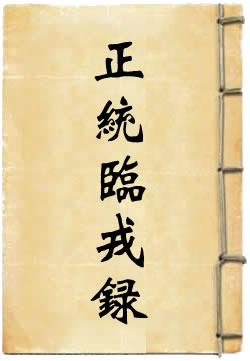 正統臨戎録